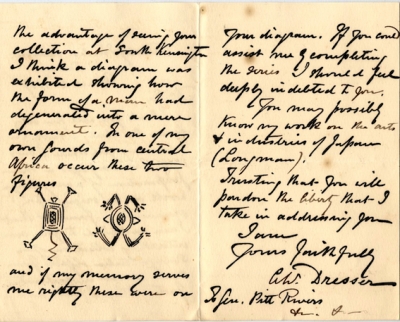 the advantage of seeing your
collection at South Kensington
I think a diagram was
exhibited showing how
the form of a man had
degenerated into a mere
ornament. In one of my
own gourds from central
Africa occur these two
figures
and if my memory serves
me rightly these were on
Your diagram. If you could
assist me by completing
the series I should feel
deeply indebted to you.
You may possibly
know my work on the arts
& industries of Japan
(Longman).
Trusting that you will
pardon the liberty that I
take in addressing you
I am
Yours faithfully
Chr. Dresser
To Gen. Pitt Rivers
&c. &c.